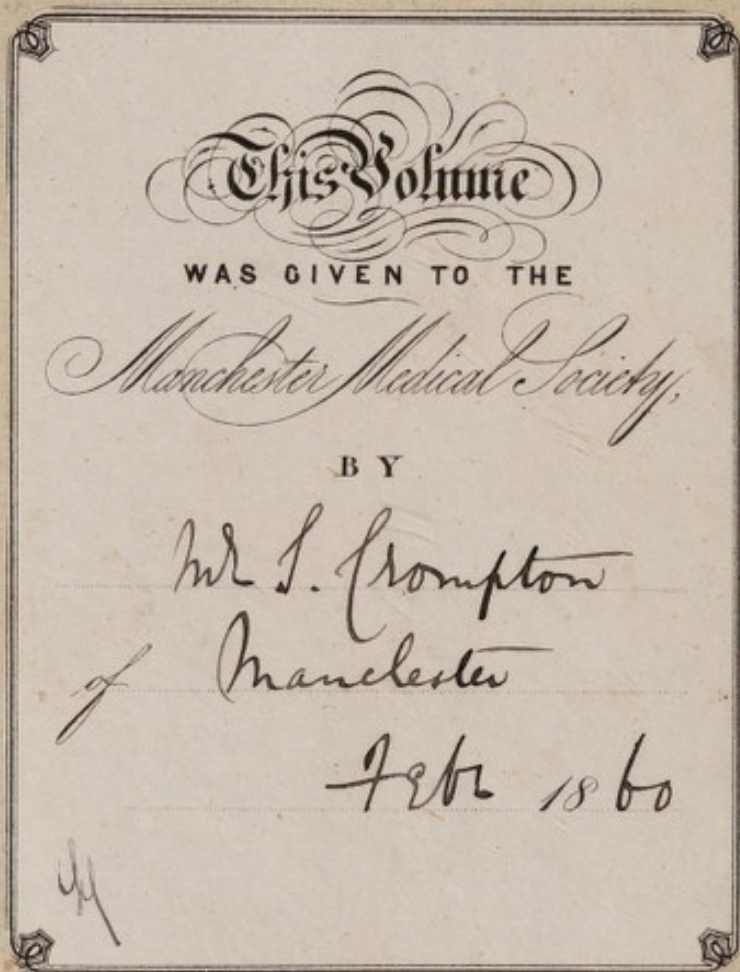 This Volume
WAS GIVEN TO THE
Manchester Medical Society,
BY
Mr S. Crompton
of Manchester
Feby 1860